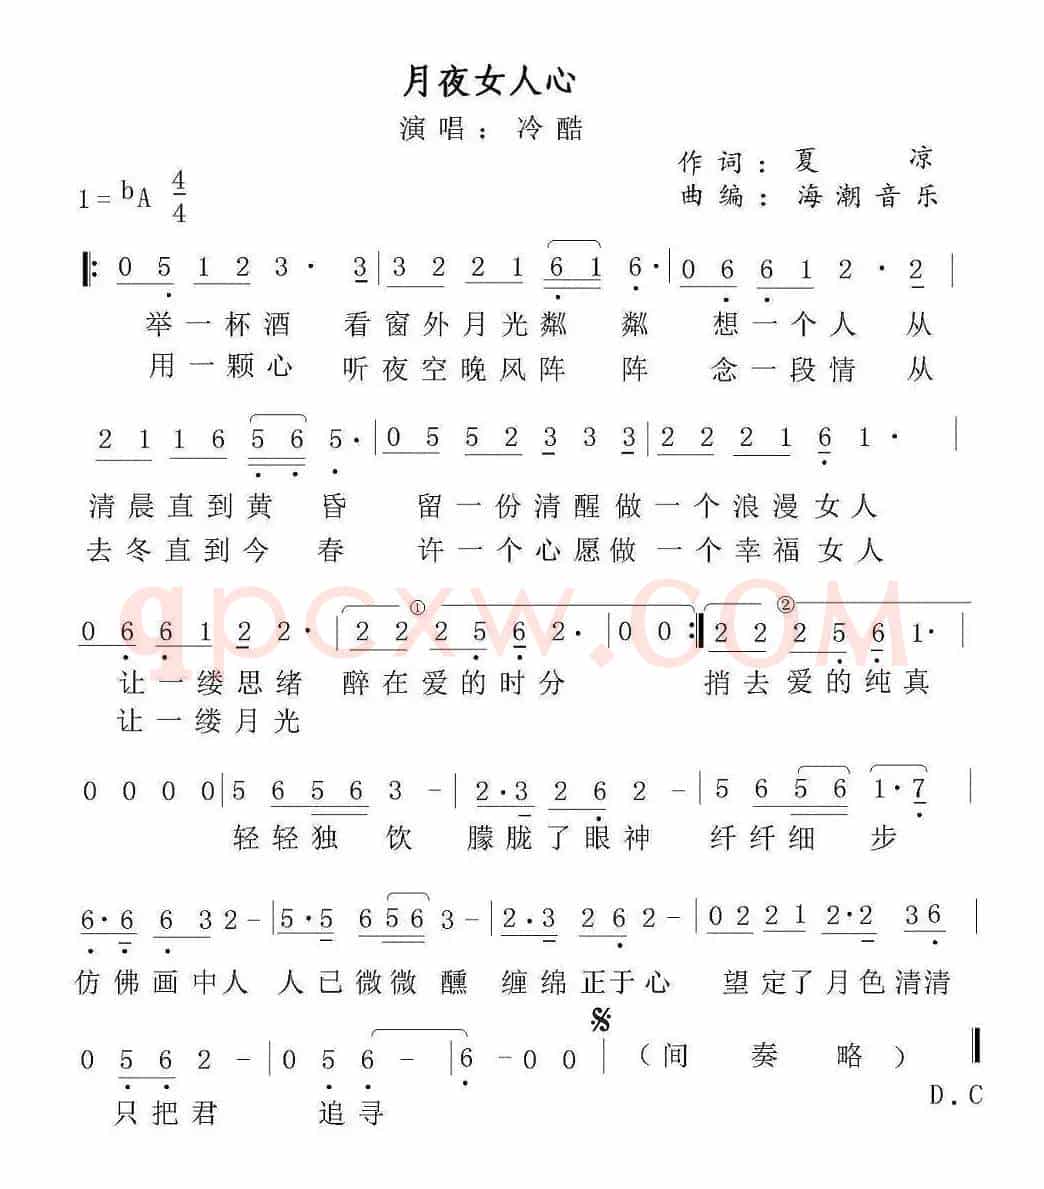 月夜女人心
演唱：冷酷
作词：夏 凉
1=bA 4/4
曲编：海潮音乐
0 5 1 2 3 · 3 | 3 2 2 1 6 1 6 · | 0 6 6 1 2 · 2 |
举一杯酒 看窗外月光粼 粼 想一个人 从
用一颗心 听夜空晚风阵 阵 念一段情 从
2 1 1 6 5 6 5 · | 0 5 5 2 3 3 3 | 2 2 2 1 6 1 · |
清晨直到黄 昏 留一份清醒做一个浪漫女人
去冬直到今 春 许一个心愿做一个幸福女人
qpcxw.COM
① ②
0 6 6 1 2 2 · | 2 2 2 5 6 2 · | 0 0 :| 2 2 2 5 6 1 · |
让一缕思绪 醉在爱的时分 捎去爱的纯真
让一缕月光
0 0 0 0 | 5 6 5 6 3 - | 2 · 3 2 6 2 - | 5 6 5 6 1 · 7 |
轻轻独 饮 朦胧了眼神 纤纤细 步
6 · 6 6 3 2 - | 5 · 5 6 5 6 3 - | 2 · 3 2 6 2 - | 0 2 2 1 2 · 2 3 6 |
仿佛画中人 人已微微醺 缠绵正于心 望定了月色清清
0 5 6 2 - | 0 5 6 - | 6 - 0 0 | （间 奏 略）
D.C
只把君 追寻